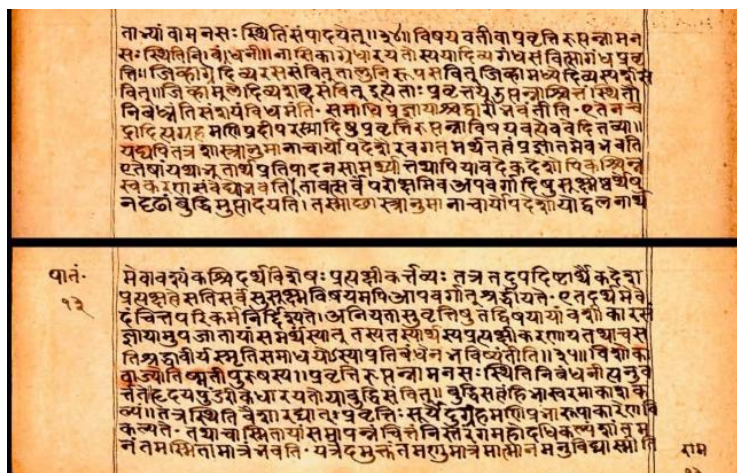 ताभ्यां वा मनसः स्थितिं संपादयेत्॥३४॥ विषयवती वा प्रवृत्तिरुत्पन्ना मन
सः स्थितिनिबंधनी॥ नासिकाग्रे धारयतो स्य या दिव्यगंधसंवित्सा गंधप्रवृ
त्तिः॥ जिह्वाग्रे दिव्यरससंवित् तालुनि रूपसंवित् जिह्वामध्ये दिव्यस्पर्शसं
वित्॥ जिह्वामूले दिव्यशब्दसंवित् इत्येताः प्रवृत्तय उत्पन्नाश्चित्तं स्थितौ
निबध्नंति संशयं विधमंति समाधिप्रज्ञायां च द्वारीभवंतीति। एतेन चं
द्रादित्यग्रहमणिप्रदीपरत्नादिषु प्रवृत्तिरुत्पन्ना विषयवत्येव वेदितव्या॥
यद्यपि तत्र शास्त्रानुमानाचार्योपदेशैरवगतमर्थतत्वं प्रज्ञातमेव भवति
एतेषां यथाभूतार्थप्रतिपादनसामर्थ्यात् तथापि यावदेकदेशोपि कश्चिन्न
स्वकरणसंवेद्यो भवति। तावत्सर्वं परोक्षमिव अपवर्गादिषु सूक्ष्मेष्वर्थेषु
न दृढां बुद्धिमुत्पादयति। तस्माच्छास्त्रानुमानाचार्योपदेशोपोद्बलनार्थ
पातं॰
१३
मेवावश्यं कश्चिदर्थविशेषः प्रत्यक्षीकर्त्तव्यः तत्र तदुपदिष्टार्थैकदेश
प्रत्यक्षत्वे सति सर्वं सुसूक्ष्मविषयमपि आपवर्गात् श्रद्धीयते। एतदर्थमेवे
दं चित्तपरिकर्म निर्द्दिश्यते। अनियतासु वृत्तिषु तद्विषयायां वशीकारसं
ज्ञायामुपजातायां समर्थं स्यात् तस्य तस्यार्थस्य प्रत्यक्षीकरणाय तथा च स
ति श्रद्धावीर्यस्मृतिसमाधयोऽस्याप्रतिबंधेन भविष्यंतीति॥३५॥ विशोका
वा ज्योतिष्मती पुरुषस्य॥ प्रवृत्तिरुत्पन्ना मनसः स्थितिनिबंधनीत्यनुव
र्त्तते हृदयपुंडरीके धारयतो या बुद्धिसंवित्॥ बुद्धिसत्वं हि भास्वरमाकाशक
ल्पं॥ तत्र स्थितिवैशारद्यात् प्रवृत्तिः सूर्येंदुग्रहमणिप्रभारूपाकारेण वि
कल्पते। तथा चास्मितायां समापन्नं चित्तं निस्तरंगमहोदधिकल्पं शांतम
नंतमस्मितामात्रं भवति। यत्रेदमुक्तं तमणुमात्रमात्मानमनुविद्यास्मीति
राम